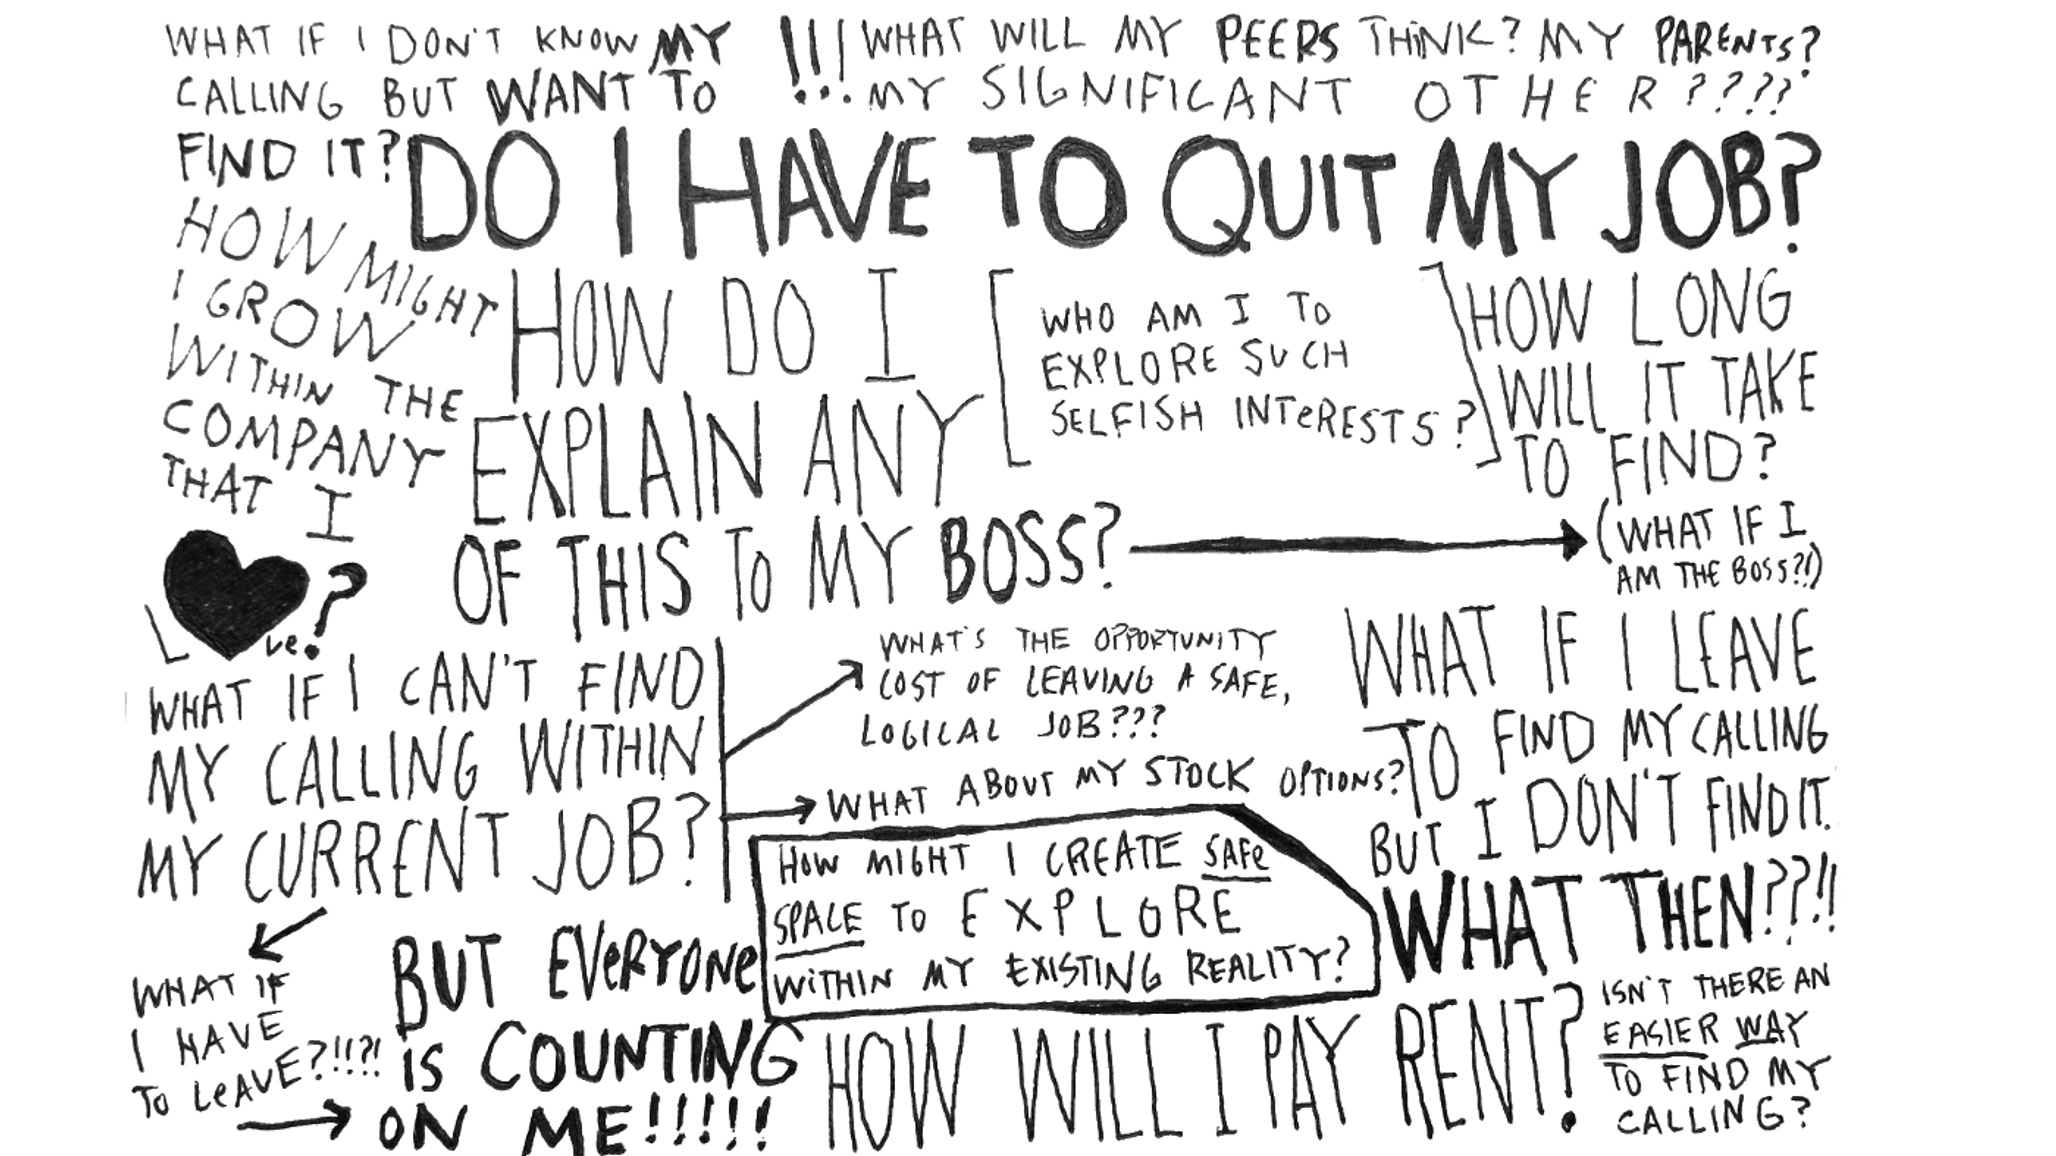 WHAT IF I DON'T KNOW MY
CALLING BUT WANT TO
FIND IT?
!!!
WHAT WILL MY PEERS THINK? MY PARENTS?
MY SIGNIFICANT OTHER????
DO I HAVE TO QUIT MY JOB?
HOW MIGHT
I GROW
WITHIN THE
COMPANY
THAT I
LOVE?
HOW DO I
EXPLAIN ANY
OF THIS TO MY BOSS?
[WHO AM I TO
EXPLORE SUCH
SELFISH INTERESTS?]
HOW LONG
WILL IT TAKE
TO FIND?
(WHAT IF I
AM THE BOSS?!)
WHAT IF I CAN'T FIND
MY CALLING WITHIN
MY CURRENT JOB?
WHAT'S THE OPPORTUNITY
COST OF LEAVING A SAFE,
LOGICAL JOB???
WHAT ABOUT MY STOCK OPTIONS?
HOW MIGHT I CREATE SAFE
SPACE TO EXPLORE
WITHIN MY EXISTING REALITY?
WHAT IF I LEAVE
TO FIND MY CALLING
BUT I DON'T FIND IT.
WHAT THEN??!!
WHAT IF
I HAVE
TO LEAVE?!!?!
BUT EVERYONE
IS COUNTING
ON ME!!!!!
HOW WILL I PAY RENT?
ISN'T THERE AN
EASIER WAY
TO FIND MY
CALLING?